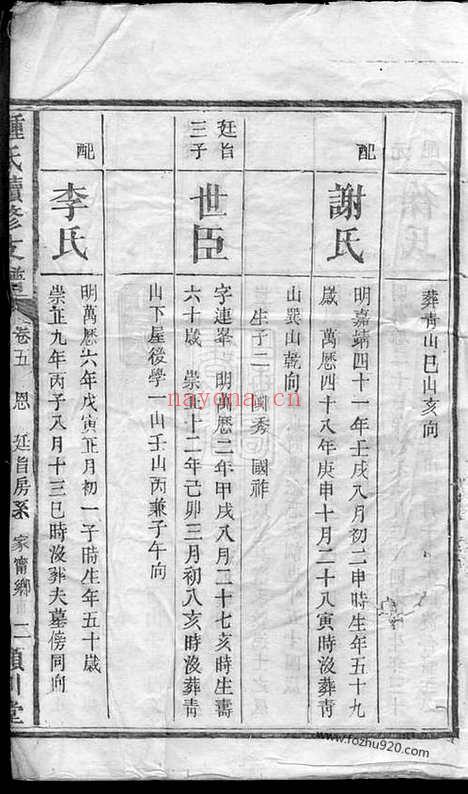 葬青山巳山亥向
配
謝氏
明嘉靖四十一年壬戌八月初二申時生年五十九
歲 萬歷四十八年庚申十月二十八寅時沒葬青
山巽山乾向
生子二 國秀 國祚
廷旨
三子
世臣
字連峯 明萬歷二年甲戌八月二十七亥時生壽
六十歲 崇正十二年己卯三月初八亥時沒葬青
山下屋後學一山壬山丙兼子午向
配
李氏
明萬歷六年戊寅正月初一子時生年五十歲
崇正九年丙子八月十三巳時沒葬夫墓傍同向
鍾氏續修支譜
卷五 恩 廷旨房系 家甯鄉 二 潁川堂
nayona.cn
www.fozhu920.com